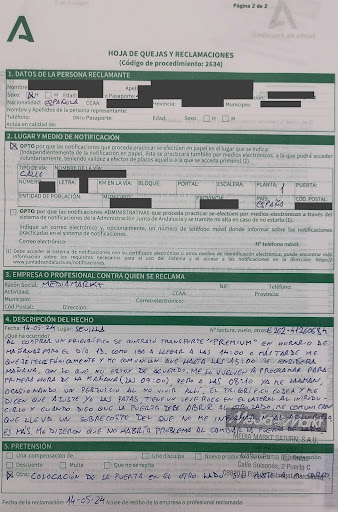 Página 2 de 2
A
HOJA DE QUEJAS Y RECLAMACIONES
(Código de procedimiento: 2634)
1. DATOS DE LA PERSONA RECLAMANTE
Nombre
Sexo H M Edad: o Pasaporte:
Nacionalidad: ESPAÑOLA CCAA: Provincia: Municipio:
Nombre y Apellidos de la persona representante:
Teléfono: DNI o Pasaporte: Edad: Sexo H M
Actúa en calidad de:
2. LUGAR Y MEDIO DE NOTIFICACIÓN
OPTO por que las notificaciones que proceda practicar se efectúen en papel en el lugar que se indica:
(Independientemente de la notificación en papel, ésta se practicará también por medios electrónicos, a la que podrá acceder
voluntariamente, teniendo validez a efectos de plazos aquella a la que se acceda primero)
TIPO DE VÍA: NOMBRE DE LA VÍA:
CALLE
NÚMERO: LETRA: KM EN LA VÍA: BLOQUE: PORTAL: ESCALERA: PLANTA: 1 PUERTA:
ENTIDAD DE POBLACIÓN: MUNICIPIO: PROVINCIA: PAÍS: CÓD. POSTAL:
ESPAÑA
OPTO por que las notificaciones ADMINISTRATIVAS que proceda practicar se efectúen por medios electrónicos a través del
sistema de notificaciones de la Administración Junta de Andalucía y se tramite mi alta en caso de no estarlo (1).
Indique un correo electrónico y, opcionalmente, un número de teléfono móvil donde informar sobre las notificaciones
practicadas en el sistema de notificaciones.
Correo electrónico: Nº teléfono móvil:
(1) Debe acceder al sistema de notificaciones con su certificado electrónico u otros medios de identificación electrónica; puede encontrar más
información sobre los requisitos necesarios para el uso del sistema y el acceso a las notificaciones en la dirección:
3. EMPRESA O PROFESIONAL CONTRA QUIEN SE RECLAMA
Razón Social: MEDIAMARKT NIF: Teléfono:
Actividad: CCAA: Provincia:
Municipio: Correo electrónico:
Cód. Postal: Dirección:
4. DESCRIPCIÓN DEL HECHO
Fecha: 14-05-24 Lugar: SEVILLA Nº factura, vuelo, otros:
Qué ha ocurrido:
AL COMPRAR UN FRIGORÍFICO SE CONTRATÓ TRANSPORTE "PREMIUM" EN HORARIO DE
MAÑANA PARA EL DÍA 13, COMO IBA A LLEGAR A LAS
TELEFÓNICAMENTE Y ME COMUNICAN QUE HASTA LAS 15:00 SE CONSIDERA
MAÑANA, CON LO QUE NO ESTOY DE ACUERDO, ME LO VUELVEN A PROGRAMAR PARA
PRIMERA HORA DE LA MAÑANA (LAS 09:00), PERO A LAS 08:10 YA ME LLAMAN
OCASIONANDO UN PERJUICIO AL NO VIVIR ALLÍ, EL FRIGORÍFICO COJEA Y ME
DICEN QUE AJUSTE YO LAS PATAS, TIENE UN LEVE ROCE EN EL LATERAL AL INTRODU-
CIRLO Y CUANDO DIGO QUE LA PUERTA DEBE ABRIR AL OTRO LADO ME COMUNICAN
QUE LLEVA UN SOBRECOSTE DEL QUE NO ME
ES MÁS, ME DIJERON QUE NO HABRÍA PROBLEMA AL CAMBIAR LA PUERTA
MediaMarkt
MEDIA MARKT SATURN, S.A.U.
5. PRETENSIÓN
Una compensación de Una disculpa Nuevo producto
Descuento Multa Que no se repita
Otro: COLOCACIÓN DE LA PUERTA EN EL OTRO LADO SIN COSTE A MI CARGO
Fecha de la reclamación: 14-05-24 Acuse de recibo de la empresa o profesional reclamada